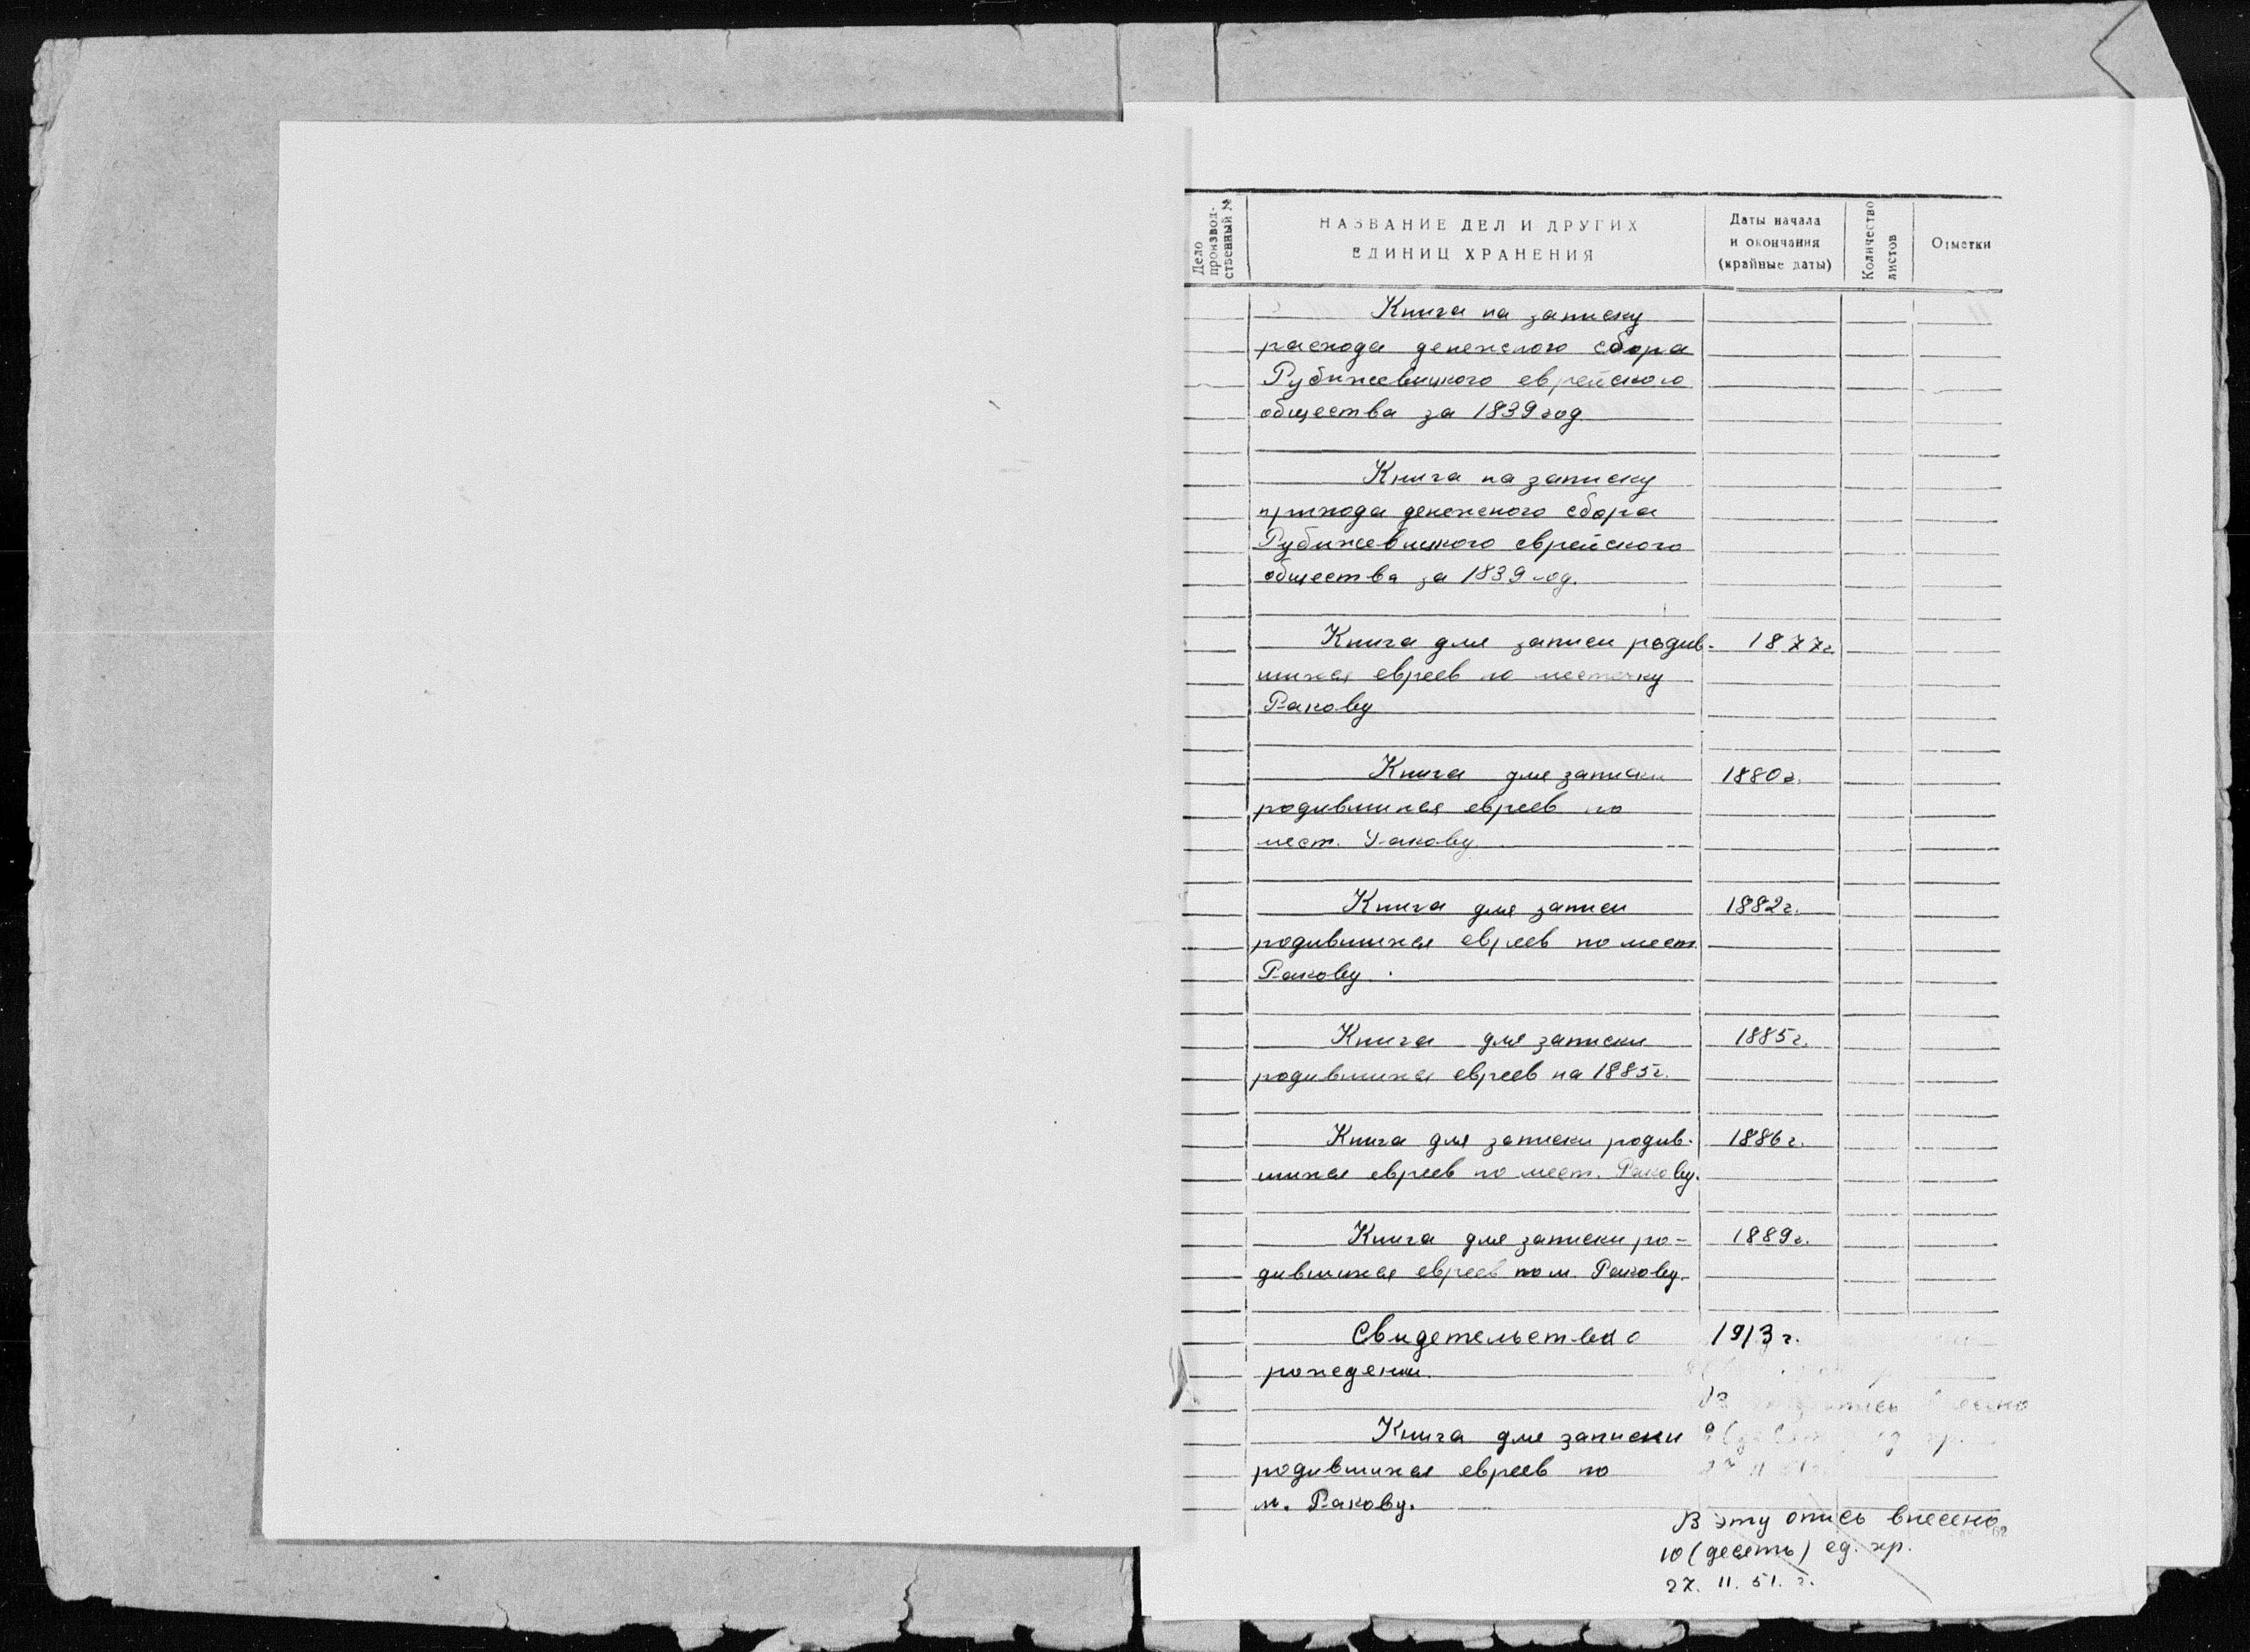 Дело производ-
ственный №
НАЗВАНИЕ ДЕЛ И ДРУГИХ
ЕДИНИЦ ХРАНЕНИЯ
Даты начала
и окончания
(крайные даты)
Количество
листов
Отметки
Книга на записку
расхода денежного сбора
Рубижевицкого еврейского
общества за 1839 год
Книга на записку
прихода денежного сбора
Рубижевицкого еврейского
общества за 1839 год.
Книга для записи родив- 1877г.
шихся евреев по местечку
Ракову
Книга для записки 1880г.
родившихся евреев по
мест. Ракову
Книга для записи 1882г.
родившихся евреев по мест.
Ракову.
Книга для записки 1885г.
родившихся евреев на 1885г.
Книга для записки родив- 1886г.
шихся евреев по мест. Ракову.
Книга для записки ро- 1889г.
дившихся евреев по м. Ракову.
Свидетельство о 1913 г.
рождении.
Книга для записки
родившихся евреев по
м. Ракову.
В эту опись внесено
10 (десять) ед. хр.
27. II. 51. г.